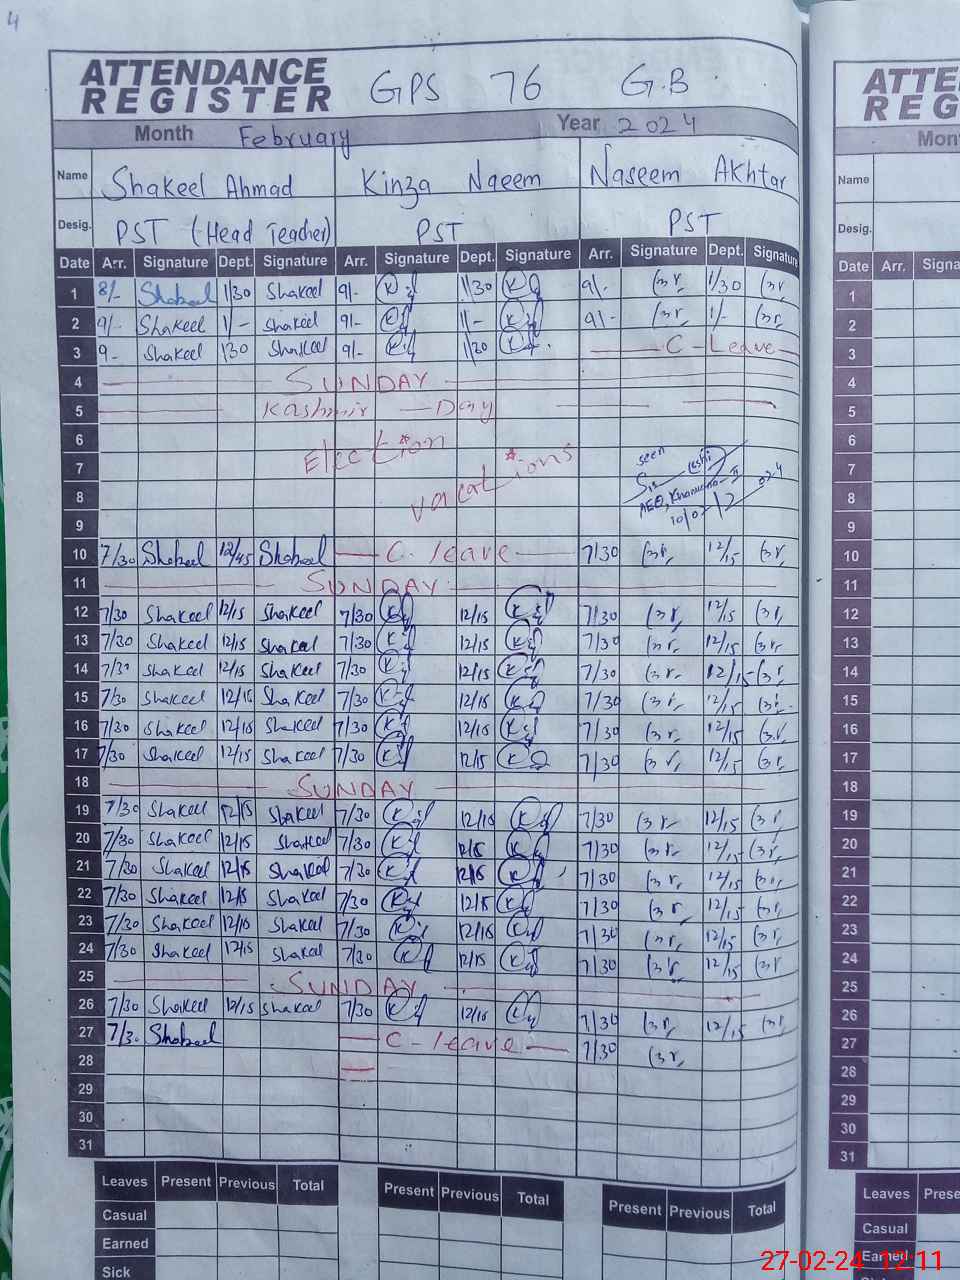 4
ATTENDANCE REGISTER GPS 76 G.B
Month February Year 2024
Name Shakeel Ahmad Kinza Naeem Naseem Akhtar
Desig. PST (Head Teacher) PST PST
Date Arr. Signature Dept. Signature Arr. Signature Dept. Signature Arr. Signature Dept. Signature
1 8/- Shakeel 1/30 Shakeel 9/- 1/30 9/- 1/30
2 9/- Shakeel 1/- Shakeel 9/- 1/- 9/- 1/-
3 9- Shakeel 130 Shakeel 9/- 1/30 C-Leave
4 SUNDAY
5 Kashmir Day
6 Election
7 vacations seen
8 AEO,
9 10/02/2024
10 7/30 Shakeel 12/45 Shakeel C. leave 7/30 12/15
11 SUNDAY
12 7/30 Shakeel 12/15 Shakeel 7/30 12/15 7/30 12/15
13 7/30 Shakeel 12/15 Shakeel 7/30 12/15 7/30 12/15
14 7/30 Shakeel 12/15 Shakeel 7/30 12/15 7/30 12/15
15 7/30 Shakeel 12/15 Shakeel 7/30 12/15 7/30 12/15
16 7/30 Shakeel 12/15 Shakeel 7/30 12/15 7/30 12/15
17 7/30 Shakeel 12/15 Shakeel 7/30 12/15 7/30 12/15
18 SUNDAY
19 7/30 Shakeel 12/15 Shakeel 7/30 12/15 7/30 12/15
20 7/30 Shakeel 12/15 Shakeel 7/30 12/15 7/30 12/15
21 7/30 Shakeel 12/15 Shakeel 7/30 12/15 7/30 12/15
22 7/30 Shakeel 12/15 Shakeel 7/30 12/15 7/30 12/15
23 7/30 Shakeel 12/15 Shakeel 7/30 12/15 7/30 12/15
24 7/30 Shakeel 12/15 Shakeel 7/30 12/15 7/30 12/15
25 SUNDAY
26 7/30 Shakeel 12/15 Shakeel 7/30 12/15 7/30 12/15
27 7/30 Shakeel C-leave 7/30
28
29
30
31
Leaves Present Previous Total Present Previous Total Present Previous Total
Casual
Earned
Sick
ATTE
REG
Mon
Name
Desig.
Date Arr. Signa
1
2
3
4
5
6
7
8
9
10
11
12
13
14
15
16
17
18
19
20
21
22
23
24
25
26
27
28
29
30
31
Leaves Prese
Casual
Earned
27-02-24 12:11